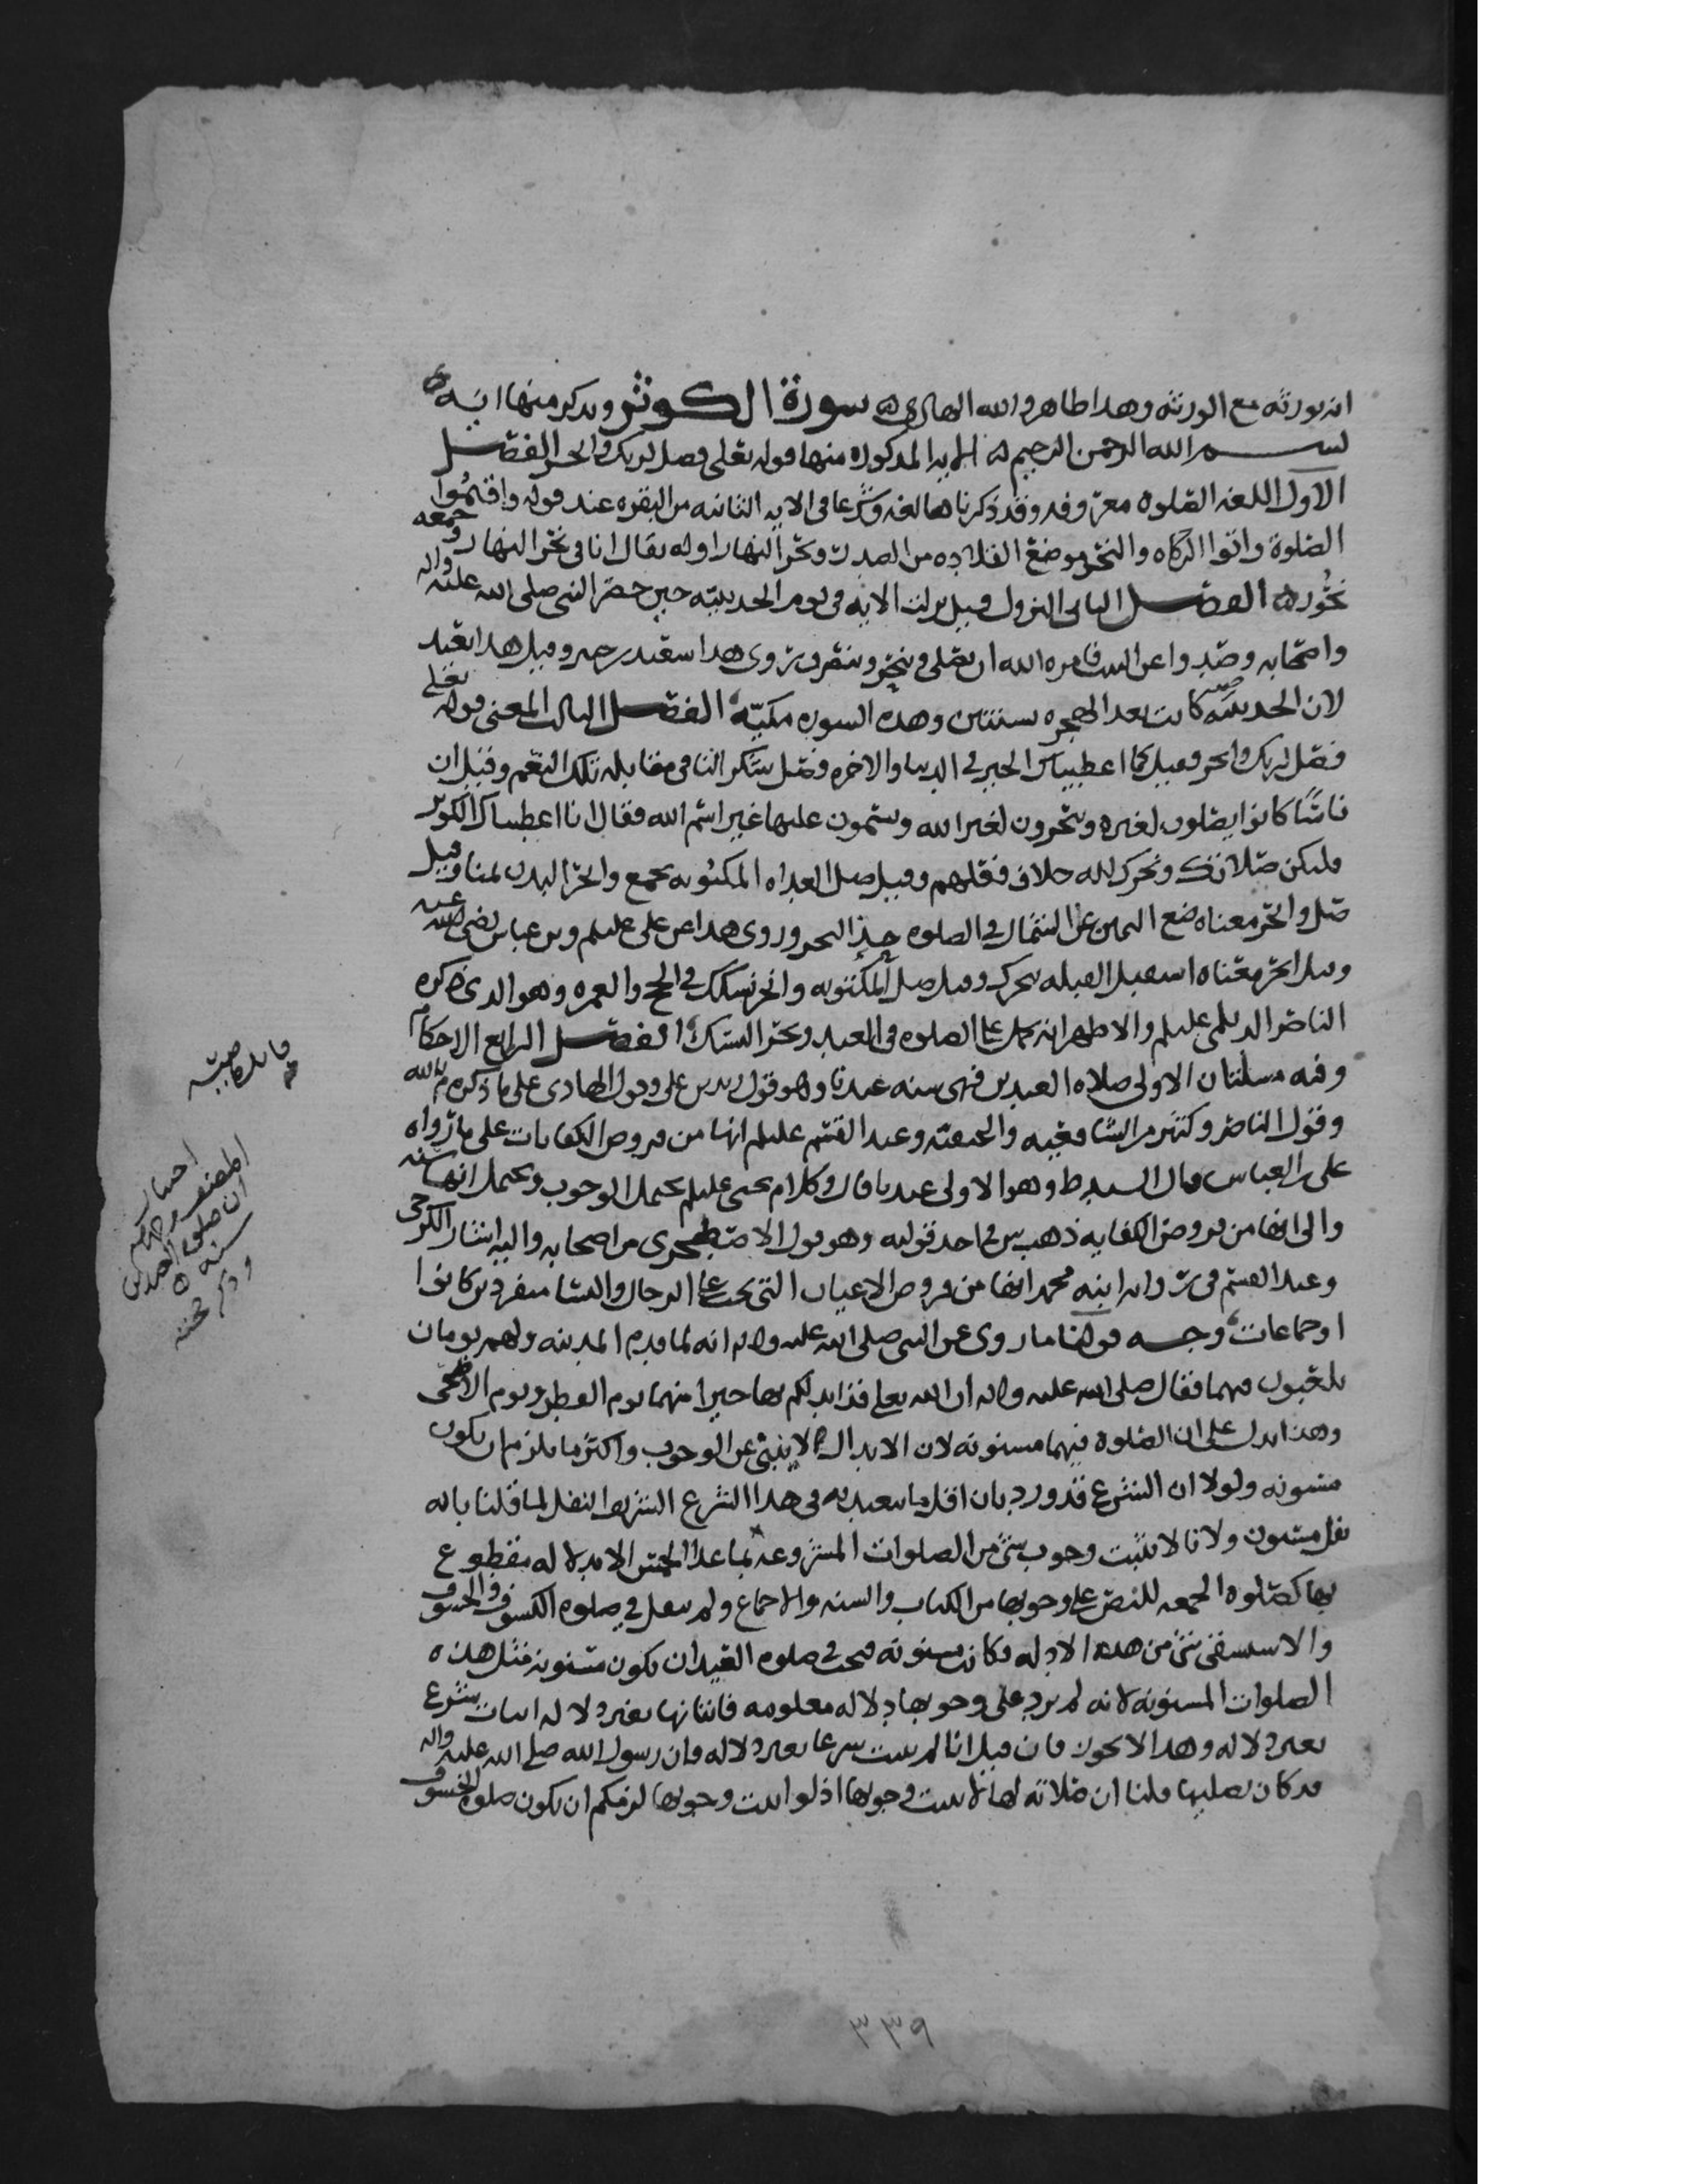 انه يورثه مع الورثه وهدا طاهر والله الهادي ه سورة الكوثر ويدكر منها ايه
بسم الله الرحمن الرحيم ه الايه المدكوره منها قوله تعلى فصل لربك وانحر الفصل
الاول اللغه الصلوه معروفه وقد ذكرناها لغه وشرعا في الايه الثانيه من البقره عند قوله واقيموا
الصلوة واتوا الزكاه والنحر موضع القلاده من الصدر ونحر النهار اوله يقال انا في نحر النهار وجمعه
نحور ه الفصل الثاني النزول قيل نزلت الايه في يوم الحديبيه حين حصر النبي صلى الله عليه واله
واصحابه وصدوا عن البيت فامره الله ان يصلي وينحر وينصرف روى هدا سعيد بن جبير وقيل هدا بعيد
لان الحديبيه كانت بعد الهجره بسنتين وهده السوره مكيه الفصل الثالث المعنى قوله تعلى
فصل لربك وانحر فقيل كما اعطيناك الخير في الدنيا والاخره فصل شكر النا في مقابله تلك النعم وقيل ان
ناسًا كانوا يصلون لغيره وينحرون لغير الله ويسمون عليها غير اسم الله فقال انا اعطيناك الكوثر
فليكن صلاتك ونحرك لله خلاف فعلهم وقيل صل الغداه المكتوبه بجمع وانحر البدن بمنا وقيل
صل وانحر معناه ضع اليمين على الشمال في الصلوه حذا النحر وروى هدا عن علي عليلم وبن عباس رضي الله عنه
وقيل انحر معناه استقبل القبله بنحرك وقيل صل المكتوبه وانحر نسكك في الحج والعمره وهو الدي ذكره
الناصر الديلمي عليلم والاظهر انه يحمل على الصلوه في العيد ونحر النسك الفصل الرابع الاحكام
وفيه مسلتان الاولى صلاه العيدين فهي سنه عندنا وهو قول زيد بن علي وقول الهادي على ما ذكره م بالله
وقول الناصر وكثير من الشافعيه والحنفيه وعند القسم عليلم انها من فروض الكفايات على ما رواه
علي بن العباس قال السيد ط وهو الاولى عندنا قال وكلام يحيى عليلم يحتمل الوجوب ويحتمل انها سنه
والى انها من فروض الكفايه ذهب ش في احد قوليه وهو قول الاصطخري من اصحابه واليه اشار الكرخي
وعند القسم في روايه ابنه محمد انها من فروض الاعيان التي تجب على الرجال والنسا منفردين كانوا
او جماعات وجه قولنا ما روى عن النبي صلى الله عليه واله انه لما قدم المدينه ولهم يومان
يلعبون فيهما فقال صلى الله عليه واله ان الله تعلى قد ابدلكم بها خيرا منهما يوم الفطر ويوم الاضحى
وهدا يدل على ان الصلوه فيهما مسنونه لان الابدال لا ينبئ عن الوجوب واكثر ما يلزم ان يكون
مسنونه ولولا ان الشرع قد ورد بان اقل ما يتعبد به في هدا الشرع الشريف النفل لما قلنا بانه
نفل مسنون ولانا لا نثبت وجوب شي من الصلوات المشروعه بما عدا الخمس الا بدلاله مقطوع
بها كصلوه الجمعه للنص على وجوبها من الكتاب والسنه والاجماع ولم ينقل في صلوه الكسوف والخسوف
والاستسقى شي من هده الادله فكانت مسنونه فيجب في صلوه العيد ان تكون مسنونه مثل هذه
الصلوات المسنونه لانه لم يرد على وجوبها دلاله معلومه فاثباتها بغير دلاله اثبات شرع
بغير دلاله وهدا لا يجوز فان قيل انا لم نثبت شرعا بغير دلاله فان رسول الله صلى الله عليه واله
قد كان يصليها قلنا ان صلاته لها لا يثبت وجوبها اذ لو اثبت وجوبها لزمكم ان يكون صلوه الخسوف
اختيار
المصنف
ان صلوه العيدين
سنه
٣٣٩